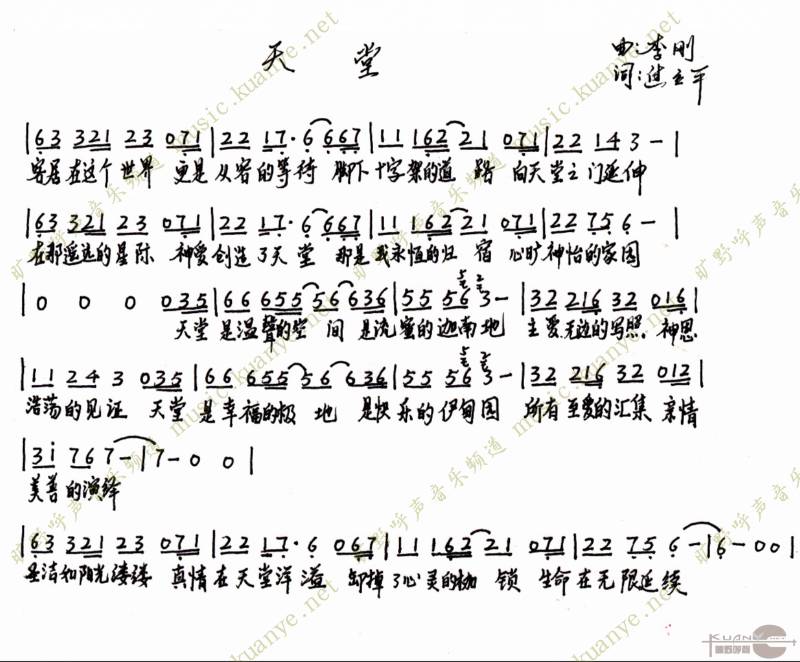 天 堂
曲:李刚
词:达立平
|63 321 23 071|22 17·6 667|11 162 21 071|22 143-|
客居在这个世界 更是从容的等待 脚下十字架的道路 向天堂之门延伸
|63 321 23 071|22 17·6 667|11 162 21 071|22 756-|
在那遥远的星际 神爱创造了天堂 那是我永恒的归宿 心旷神怡的家园
|0 0 0 035|66 655 56 636|55 56 3-|32 216 32 016|
天堂是温馨的空间 是流蜜的迦南地 主爱无边的写照,神恩
|11 24 3 035|66 655 56 636|55 56 3-|32 216 32 012|
浩荡的见证 天堂是幸福的极地 是快乐的伊甸园 所有至爱的汇集 亲情
|3i 767-|7-0 0|
美善的演绎
|63 321 23 071|22 17·6 067|11 162 21 071|22 756-|6-00|
圣洁和阳光缕缕 真情在天堂洋溢 卸掉了心灵的枷锁 生命在无限延续
旷野呼声音乐频道 music.kuanye.net
KUANYE
旷野呼声